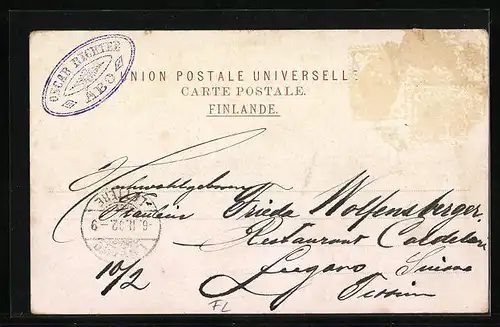 OSCAR RICHTER
ABO
UNION POSTALE UNIVERSELLE
CARTE POSTALE.
FINLANDE.
Hochwohlgeboren
Fräulein Frieda Wolfensberger.
Restaurant
Lugano Suisse
10/2 Tessin
FL